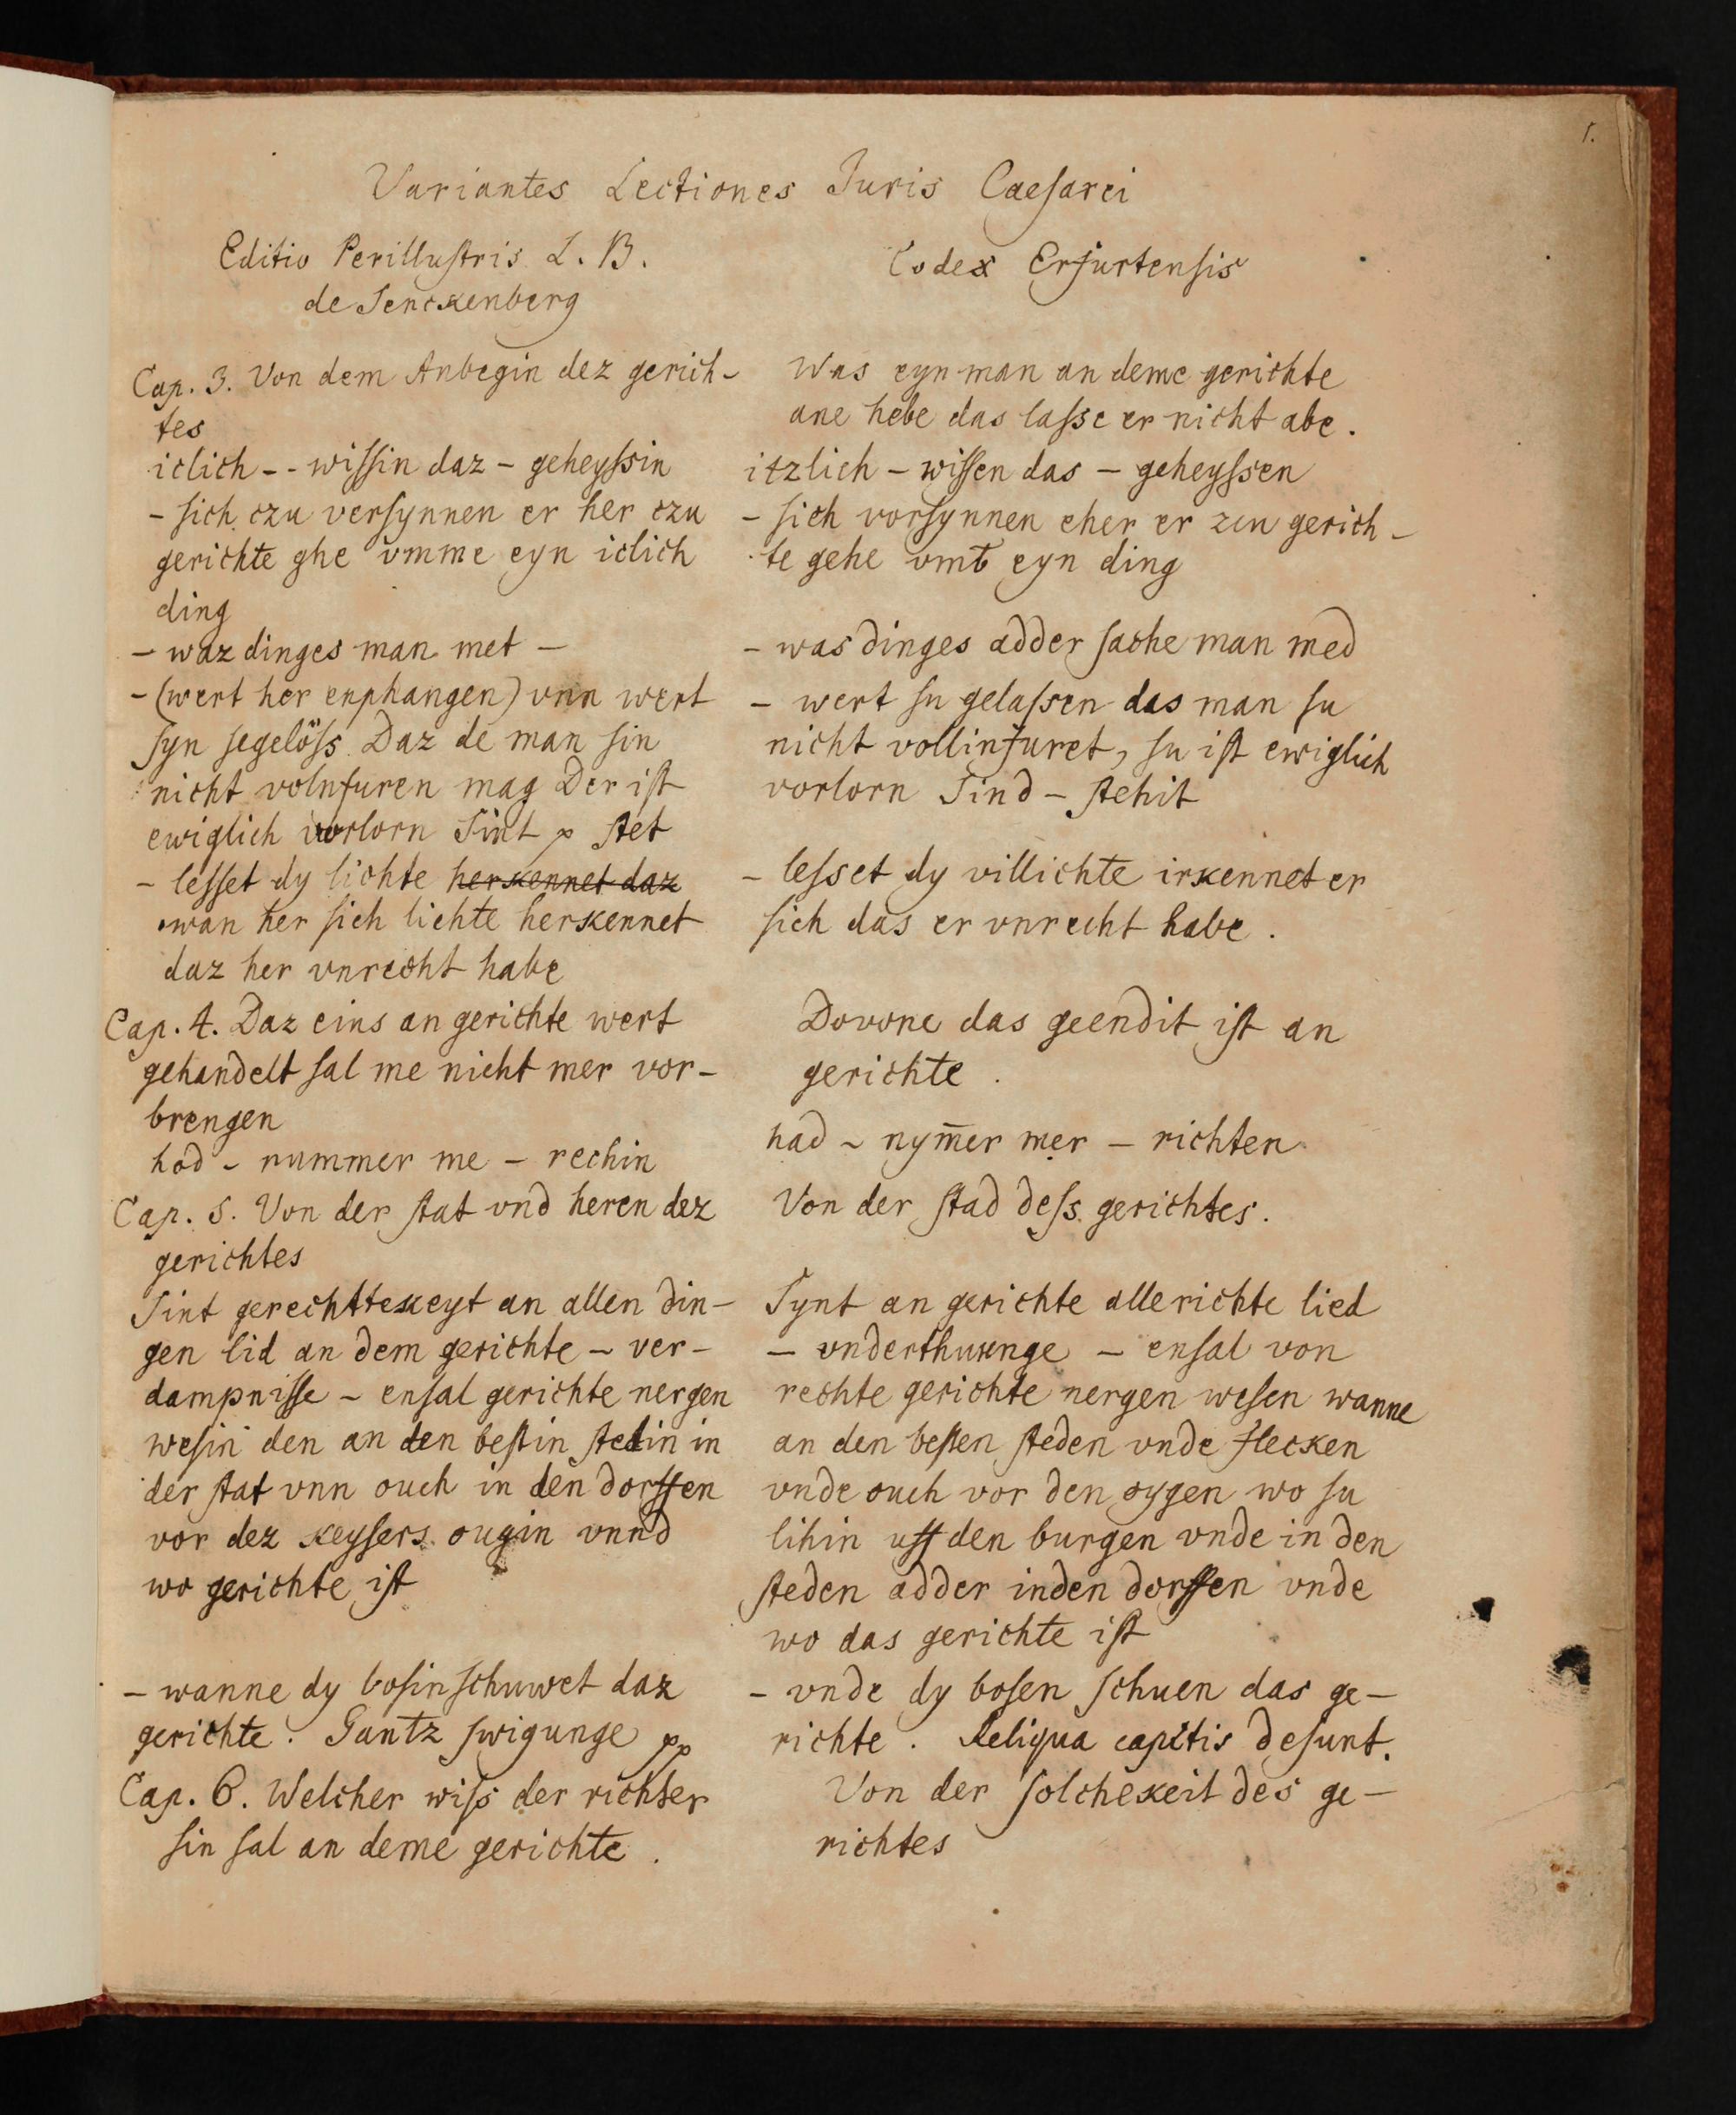 1.
Variantes Lectiones Juris Caeſarei
Editio Perilluſtris L. B.
de Senckenberg
Cap. 3. Von dem Anbegin dez gerich-
tes
iclich -- wiſſin daz - geheyſsin
- ſich czu verſynnen er her czu
gerichte ghe vmme eyn iclich
ding
- waz dinges man met -
- (wert her enphangen) vnn wert
ſyn ſegelöſs Daz de man ſin
nicht volnfuren mag Der iſt
ewiglich vorlorn Sint p ſtet
- leſſet dy lichte herkennet daz
wan her ſich lichte herkennet
daz her vnrecht habe
Cap. 4. Daz eins an gerichte wert
gehandelt ſal me nicht mer vor-
brengen
hod - nummer me - rechin
Cap. 5. Von der ſtat vnd heren dez
gerichtes
Sint gerechttekeyt an allen din-
gen lid an dem gerichte - ver-
dampniſſe - enſal gerichte nergen
weſin den an den beſtin ſtedin in
der ſtat vnn ouch in den dorffen
vor dez keyſers ougin vnnd
wo gerichte iſt
- wanne dy boſin ſchuwet daz
gerichte. Gantz ſwigunge pp
Cap. 6. Welcher wiſs der richter
ſin ſal an deme gerichte.
Codex Erfurtenſis
Was eyn man an deme gerichte
ane hebe das laſse er nicht abe.
itzlich - wiſſen das - geheyſsen
- ſich vorſynnen eher er zcu gerich-
te gehe vmb eyn ding
- was dinges adder ſache man med
- wert ſu gelaſsen das man ſu
nicht vollinfuret, ſu iſt ewiglich
vorlorn Sind - ſtehit
- leſset dy villichte irkennet er
ſich das er vnrecht habe.
Dovone das geendit iſt an
gerichte.
had - nym̅er mer - richten
Von der ſtad deſs gerichtes.
Synt an gerichte alle richte lied
- vnderthuunge - enſal von
rechte gerichte nergen weſen wanne
an den beſten ſteden vnde flecken
vnde ouch vor den oygen wo ſu
lihin uff den burgen vnde in den
ſteden adder in den dorffen vnde
wo das gerichte iſt
- vnde dy boſen ſchuen das ge-
richte. Reliqua capitis deſunt.
Von der ſolchekeit des ge-
richtes